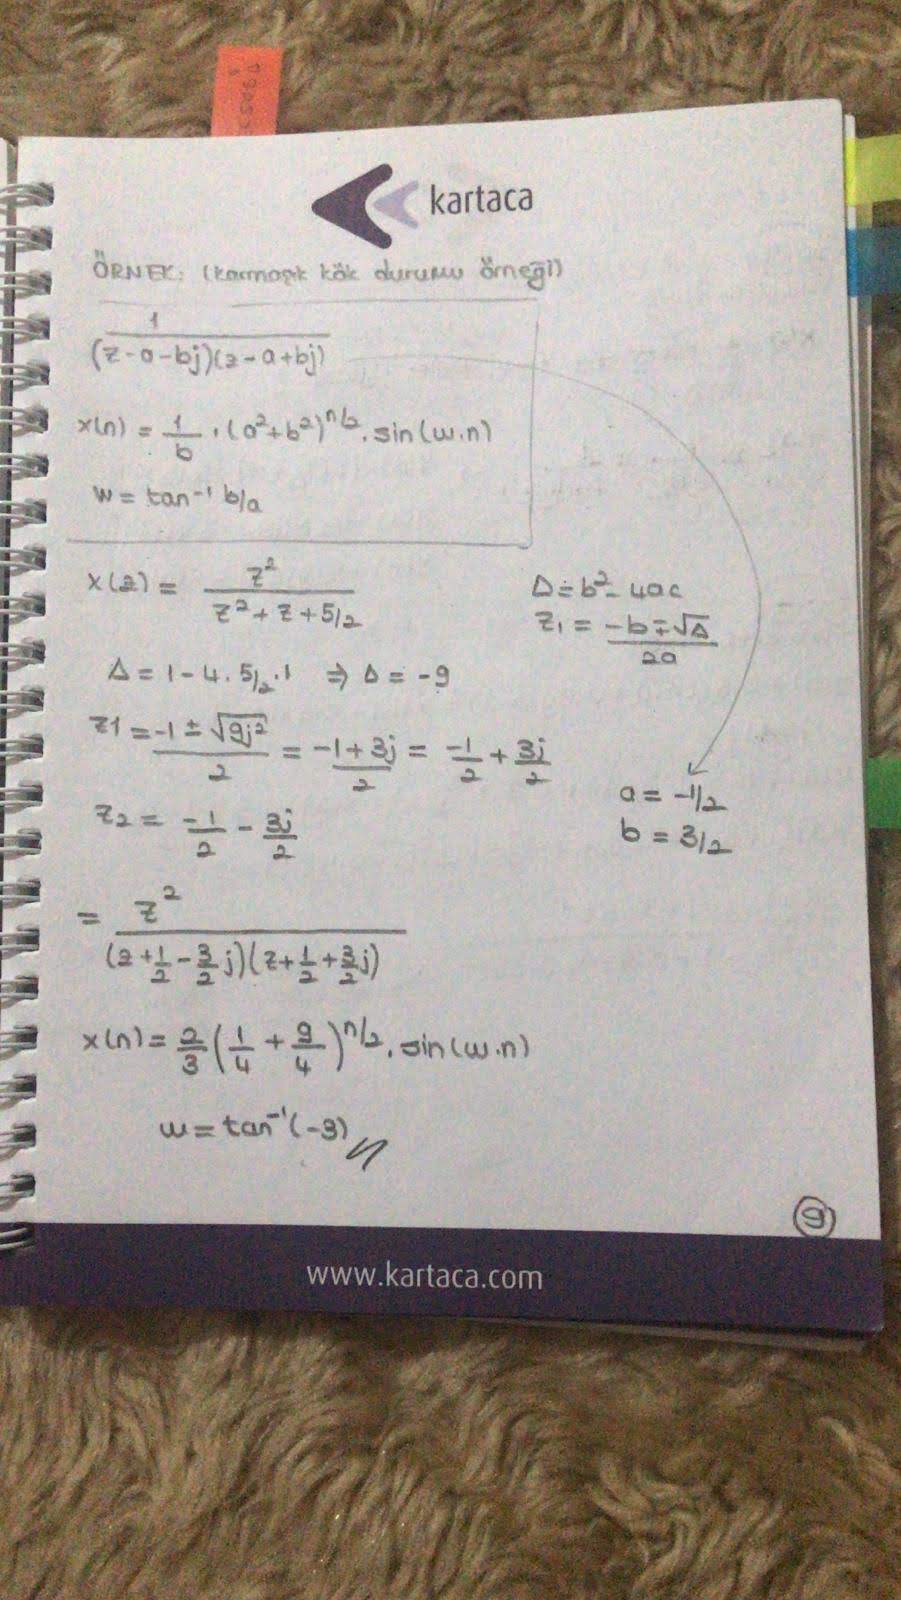 kartaca
ÖRNEK: (karmaşık kök durumu örneği)
1
(z-a-bj)(z-a+bj)
x(n) = 1/b . (a²+b²)^n/2 . sin(w.n)
w = tan⁻¹ b/a
x(z) = z² / z²+z+5/2
Δ = b²-4ac
z1 = -b∓√Δ / 2a
Δ = 1-4.5/2.1 ⇒ Δ = -9
z1 = -1±√9j² / 2 = -1+3j / 2 = -1/2 + 3j/2
a = -1/2
z2 = -1/2 - 3j/2
b = 3/2
= z² / (z+1/2-3/2j)(z+1/2+3/2j)
x(n) = 2/3 (1/4 + 9/4)^n/2 . sin(w.n)
w = tan⁻¹(-3)
9
www.kartaca.com